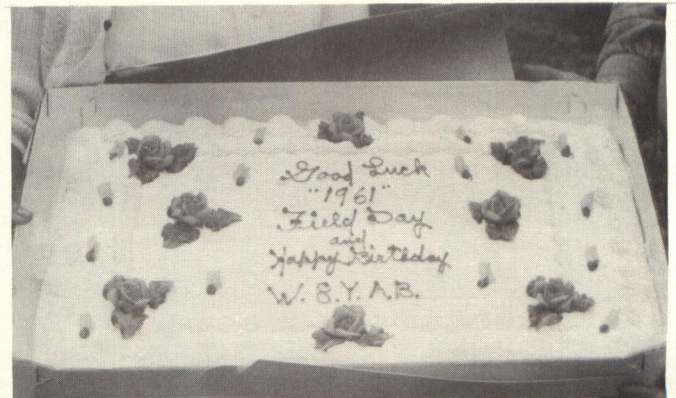 Good Luck
"1961"
Field Day
and
Happy Birthday
W. 8. Y. A. B.